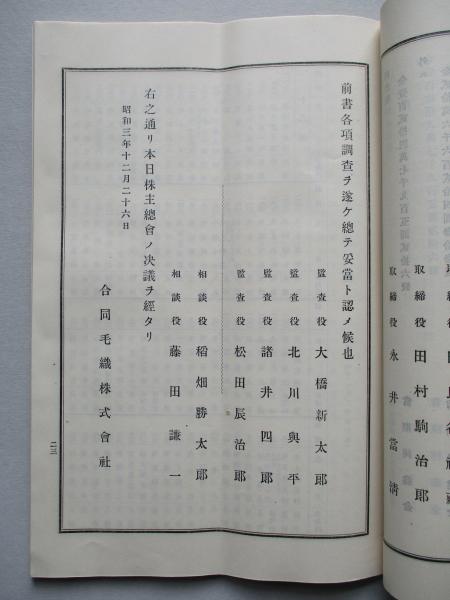 取締役 田村駒治郎
取締役 永井當淸
前書各項調査ヲ遂ケ總テ妥當ト認メ候也
監査役 大橋新太郎
監査役 北川與平
監査役 諸井四郎
監査役 松田辰治郎
相談役 稻畑勝太郎
相談役 藤田謙一
右之通リ本日株主總會ノ決議ヲ經タリ
昭和三年十二月二十六日
合同毛織株式會社
二三